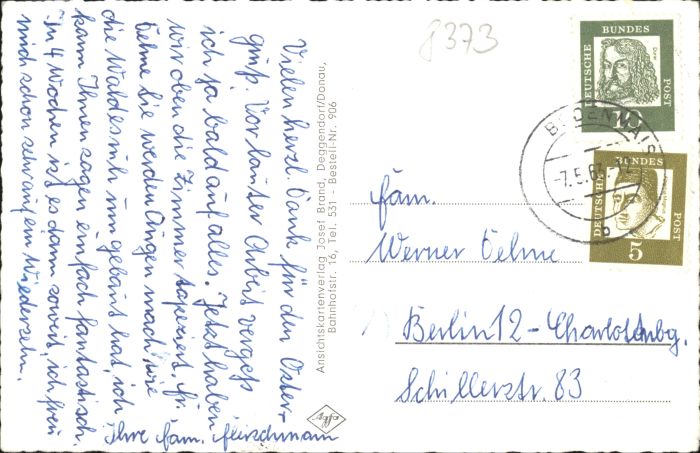 8373
DEUTSCHE BUNDES POST
Dürer
10
DEUTSCHE BUNDES POST
5
BODENMAIS
-7.5.63.-12
b
Vielen herzl. Dank für den Oster-
gruß. Vor lauter Arbeit vergeß
ich ja bald auf alles. Jetzt haben
wir oben die Zimmer tapeziert, Fr.
Oelme Sie werden Augen mach wie
die Waldesruh um gebaut hat, ich
kann Ihnen sagen einfach fantastisch.
In 4 Wochen ist es dann soweit, ich freu
mich schon sehr auf ein Wiedersehn.
Ihre Fam. Fleischmann
Ansichtskartenverlag Josef Brand, Deggendorf/Donau,
Bahnhofstr. 16, Tel. 531 - Bestell-Nr. 906
Fam.
Werner Oelme
Berlin 12 - Charlottenbg.
Schillerstr. 83